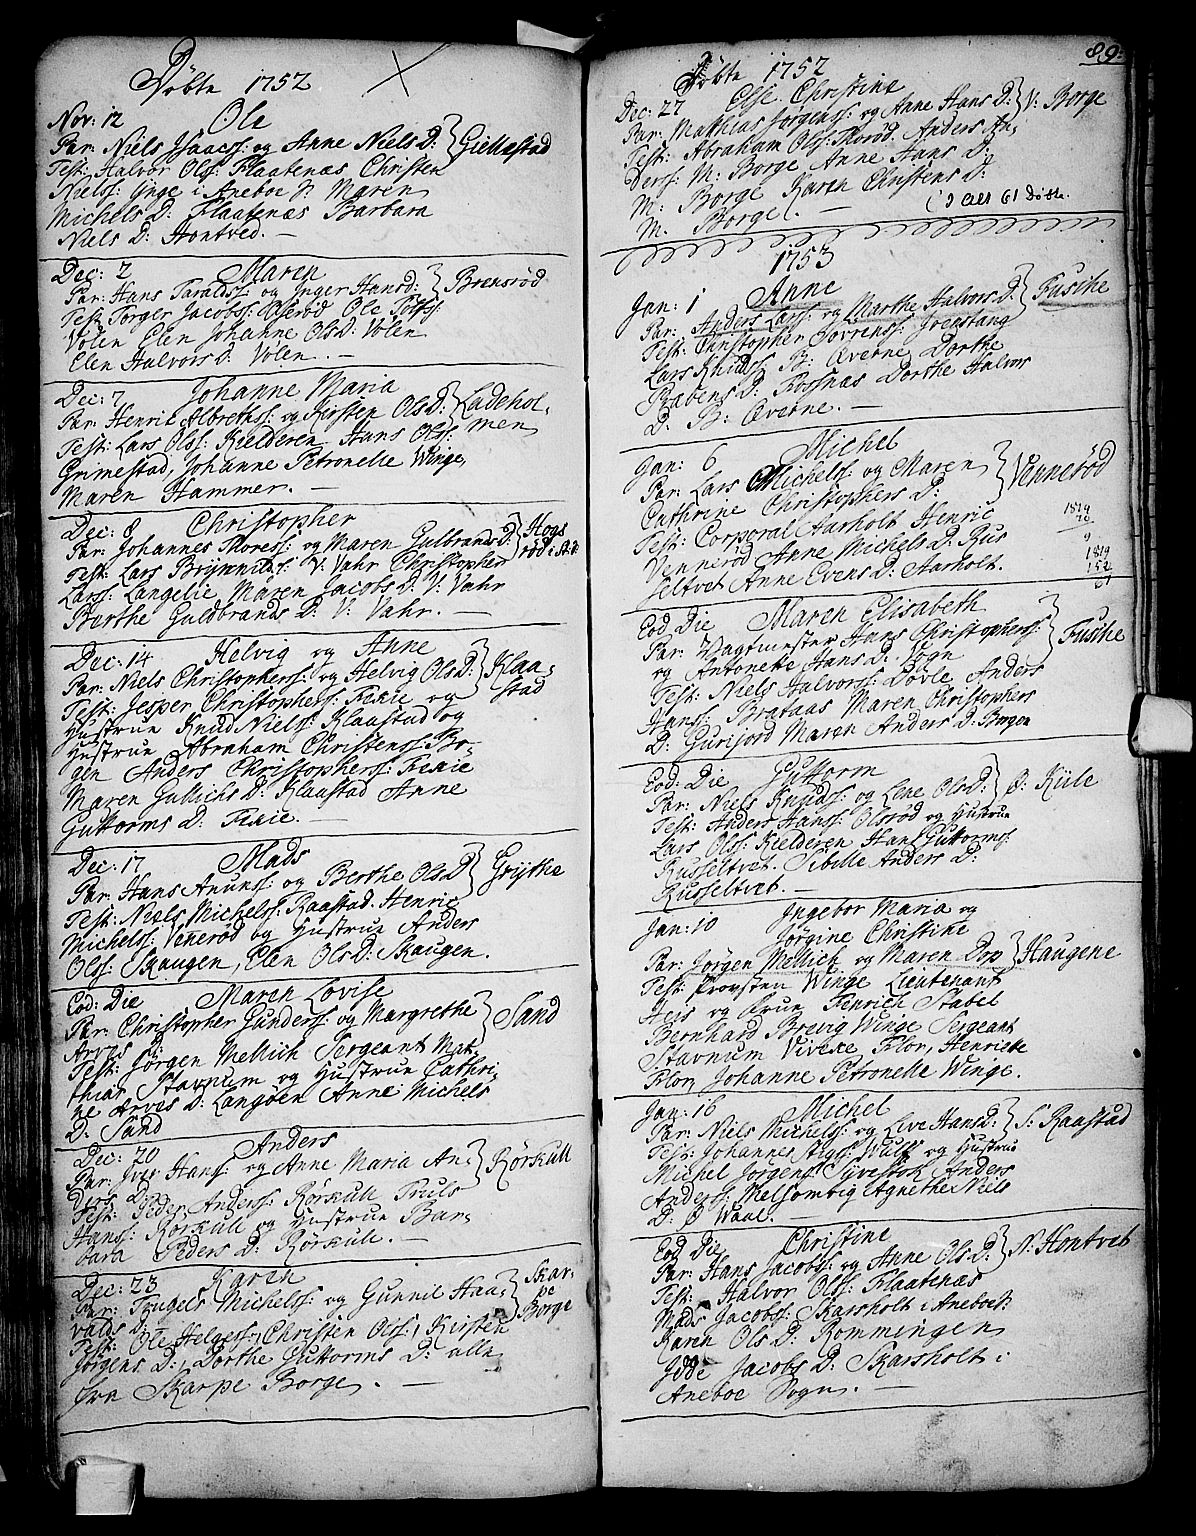 Döbte 1752
Nov: 12 Ole
Par: Niels Isaacs: og Anne Niels D: } Giellestad
Test: Halvor Ols: Flaatenæs Christen
Niels: Ynge i Aneboe P: Maren
Michels D: Flaatenæs Barbara
Niels D: Hontved. —
Dec: 2 Maren
Par: Hans Taralds: og Inger Hansd: } Brensröd
Test Torger Jacobs: Olseröd Ole Tolfs:
Volen Elen Johanne OlsD: Volen
Elen Halvors D: Volen. —
Dec: 7 Johanne Maria
Par: Henric Albreths: og Kirsten OlsD: } Ladehol-
Test: Lars Ols: Kielderen Hans Ols: men
Grimestad, Johanne Petronelle Winge,
Maren Hammer. —
Dec: 8 Christopher
Par: Johannes Thores: og Maren Gulbrands D: } Hogs
Test: Lars Brynnilds: V: Vahr Christopher röd i
Lars: Langelie Maren Jacobs D: V: Vahr
Berthe Guldbrands D: V: Vahr. —
Dec: 14 Helvig og Anne
Par: Niels Christophers: og Helvig OlsD: } Klaa-
Test: Jesper Christophers: Fexie og stad
Hustrue Knud Niels: Klaastad og
Hustrue Abraham Christens: Bo-
gen Anders Christophers: Fexie
Maren Gullichs D: Klaastad Anne
Guttorms D: Fexie. —
Dec: 17 Mads
Par: Hans Anuns: og Berthe Ols D } Grythe
Test: Niels Michels: Raastad Henric
Michels: Veneröd og Hustrue Anders
Ols: Skaugen, Elen OlsD: Skaugen.
Eod: Die Maren Lovise
Par: Christopher Gunders: og Margrethe } Sand
Arves D:
Test: Jörgen Mellich Sergeant Mat-
thias Stavnum og Hustrue Cathri-
ne Arves D: Langöen Anne Michels
D: Sand
Dec: 20 Anders
Par: Iver Hans: og Anne Maria An- } Rörkull
ders D:
Test: Peder Anders: Rörkull Truls
Hans: Rörkull og Hustrue Bar-
bara Peders D: Rörkull. —
Dec: 23 Karen
Par: Trugels Michels: og Gunnil Haa- } Skar-
valds D: — pe
Test: Ole Helges: Christen Ols: Kirsten Borge
Jörgens D: Dorthe Guttorms D: alle
fra Skarpe Borge. —
89:
Döbte 1752
Dec: 27 Else Christine
Par: Mathias Jörgens: og Anne Hans D: } V: Borge
Test: Abraham Ols: Thoröd. Anders An-
ders: M: Borge Anne Hans D:
M: Borge Karen Christens D:
M: Borge. —
( I alt 61 döbte.
1753
Jan: 1 Anne
Par: Anders Lars: og Marthe Halvors D: } Fusche
Test: Christopher Sörrens: Joenstang
Lars Knuds: B: Averne Dorthe
Rabens D: Fosnæs Dorthe Halvor
D: B: Averne. —
Jan: 6 Michel
Par: Lars Michels: og Maren } Venneröd
Cathrine Christophers D:
Test: Corporal Aarholt Henric
Venneröd Anne Michels D: Rus
seltvet Anne Evens D: Aarholt.
1819
152
Eod Die Maren Elisabeth
Par: Vagtmester Hans Christophers: } Fusche
og Antonette Hans D: Sogn
Test: Niels Halvors: Dövle Anders
Hans: Brataas Maren Christophers
D: Gurijord Maren Anders D: Borgen
Eod: Die Guttorm
Par: Niels Knuds: og Lene OlsD: } Ø: Kiile
Test: Anders Hans: Olsröd og Hustrue
Lars Ols: Kielderen Hans Guttorms:
Russeltvet. Sibille Anders D:
Russeltvet. —
Jan: 10 Ingebor Maria og
Jörgine Christine
Par: Jörgen Mellich og Maren Dop } Haugene
Test: Provsten Winge Lieutenant
Heis og Frue Henrich Stabel
Bernhard Brevig Winge Sergeant
Stavnum Viveke Flor, Henriette
Flor, Johanne Petronelle Winge.
Jan: 16 Michel
Par: Niels Michels: og Live Hans D: } S: Raastad
Test: Johannes Stigs: Wulf og Hustrue
Michel Jörgens: Syvestok Anders
Anders: Melsombig Agnethe Niels
D: Ø Waal. —
Eod Die Christine
Par: Hans Jacobs: og Anne Ols D: } N: Hontvet
Test: Halvor Ols: Flaatenæs
Mads Jacobs: Skarsholt i Aneboe P:
Karen Ols D: Rommingen
Idde Jacobs D: Skarsholt i
Aneboe Sogn. —